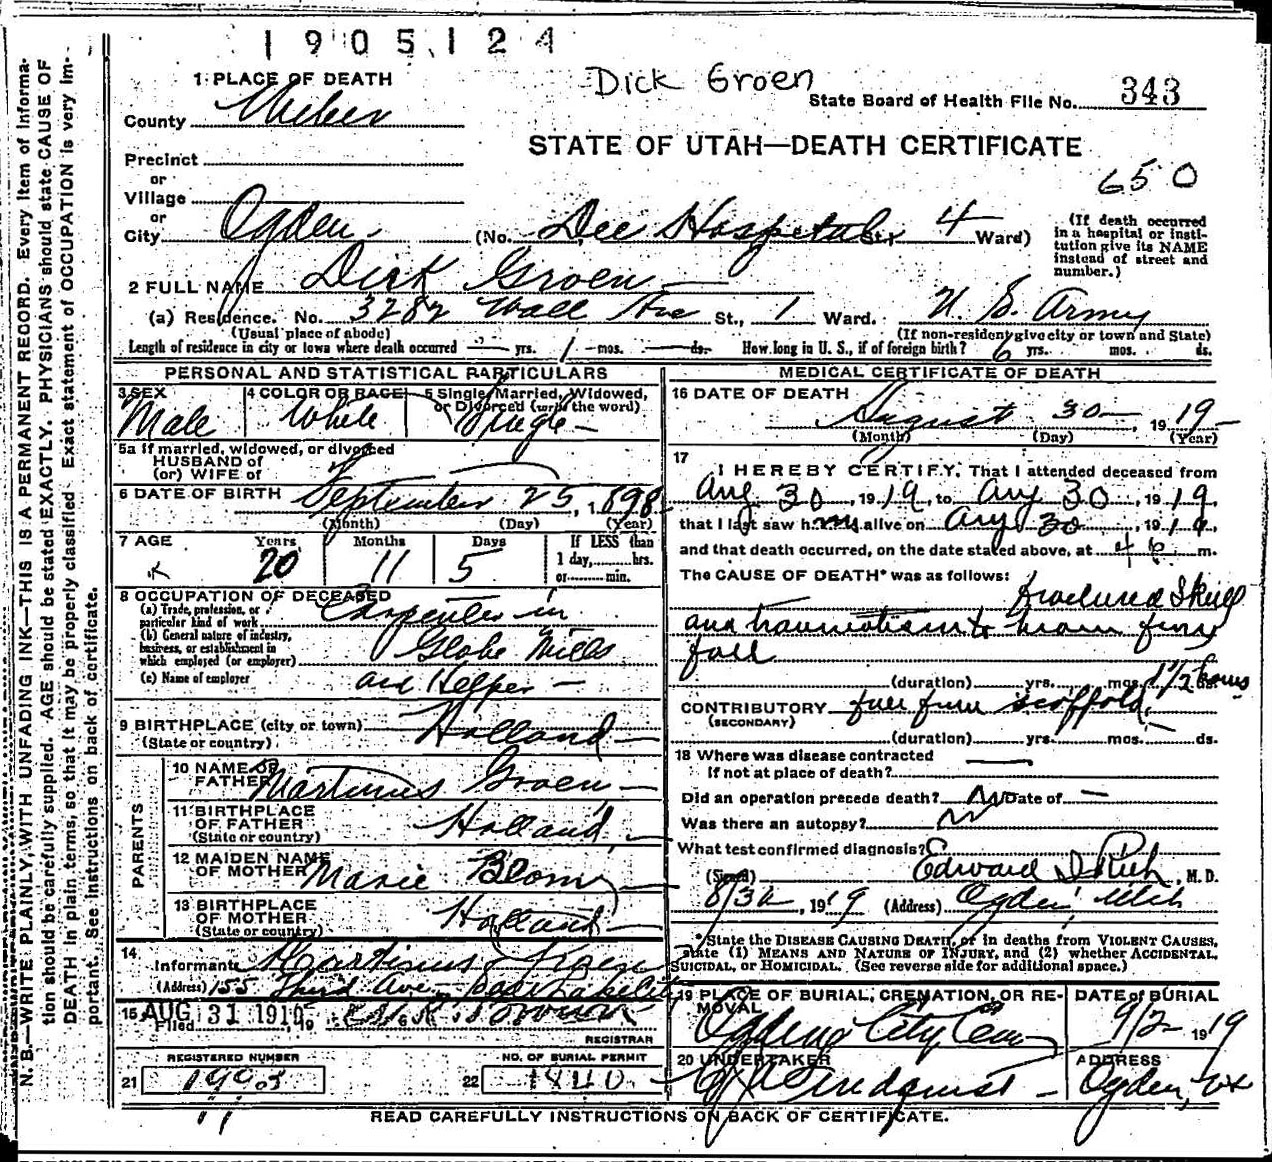 1905124
Dick Groen
1 PLACE OF DEATH
State Board of Health File No. 343
County Weber
STATE OF UTAH—DEATH CERTIFICATE
650
Precinct
or
Village
or
City Ogden (No. Dee Hospital St., 4 Ward)
(If death occurred in a hospital or institution give its NAME instead of street and number.)
2 FULL NAME Dick Groen
(a) Residence. No. 3282 Wall Ave St., 1 Ward. U. S. Army
(Usual place of abode) (If non-resident give city or town and State)
Length of residence in city or town where death occurred — yrs. 1 mos. — ds. How long in U. S., if of foreign birth? 6 yrs. mos. ds.
PERSONAL AND STATISTICAL PARTICULARS
3 SEX Male
4 COLOR OR RACE White
5 Single, Married, Widowed, or Divorced (write the word) Single
5a If married, widowed, or divorced
HUSBAND of
(or) WIFE of
6 DATE OF BIRTH September 25, 1898
(Month) (Day) (Year)
7 AGE Years 20 Months 11 Days 5 If LESS than 1 day, hrs. or min.
8 OCCUPATION OF DECEASED
(a) Trade, profession, or particular kind of work Carpenter in
(b) General nature of industry, business, or establishment in which employed (or employer) Globe Mills
(c) Name of employer and Helper
9 BIRTHPLACE (city or town) Holland
(State or country)
PARENTS
10 NAME OF FATHER Martinus Groen
11 BIRTHPLACE OF FATHER Holland
(State or country)
12 MAIDEN NAME OF MOTHER Marie
13 BIRTHPLACE OF MOTHER Holland
(State or country)
14 Informant Martinus Groen
(Address) 155 Third Ave Salt Lake City
15 Filed AUG 31 1919, 19
REGISTRAR
REGISTERED NUMBER
21
NO. OF BURIAL PERMIT
22 1840
MEDICAL CERTIFICATE OF DEATH
16 DATE OF DEATH August 30, 1919
(Month) (Day) (Year)
17 I HEREBY CERTIFY, That I attended deceased from
Aug 30, 1919, to Aug 30, 1919,
that I last saw him alive on Aug 30, 1919,
and that death occurred, on the date stated above, at m.
The CAUSE OF DEATH* was as follows:
Fractured Skull
and traumatism to brain from
fall
(duration) yrs. mos. ds. 1 1/2 hours
CONTRIBUTORY fall from scaffold
(SECONDARY)
(duration) yrs. mos. ds.
18 Where was disease contracted
If not at place of death?
Did an operation precede death? No Date of —
Was there an autopsy? No
What test confirmed diagnosis?
(Signed) Edward I Rich, M. D.
8/30, 1919 (Address) Ogden, Utah
*State the DISEASE CAUSING DEATH, or in deaths from VIOLENT CAUSES, state (1) MEANS AND NATURE OF INJURY, and (2) whether ACCIDENTAL, SUICIDAL, or HOMICIDAL. (See reverse side for additional space.)
19 PLACE OF BURIAL, CREMATION, OR REMOVAL Ogden City Cem
DATE of BURIAL 9/2 1919
20 UNDERTAKER Lindquist
ADDRESS Ogden, Ut
READ CAREFULLY INSTRUCTIONS ON BACK OF CERTIFICATE.
N. B.—WRITE PLAINLY, WITH UNFADING INK—THIS IS A PERMANENT RECORD. Every item of information should be carefully supplied. AGE should be stated EXACTLY. PHYSICIANS should state CAUSE OF DEATH in plain terms, so that it may be properly classified. Exact statement of OCCUPATION is very important. See instructions on back of certificate.